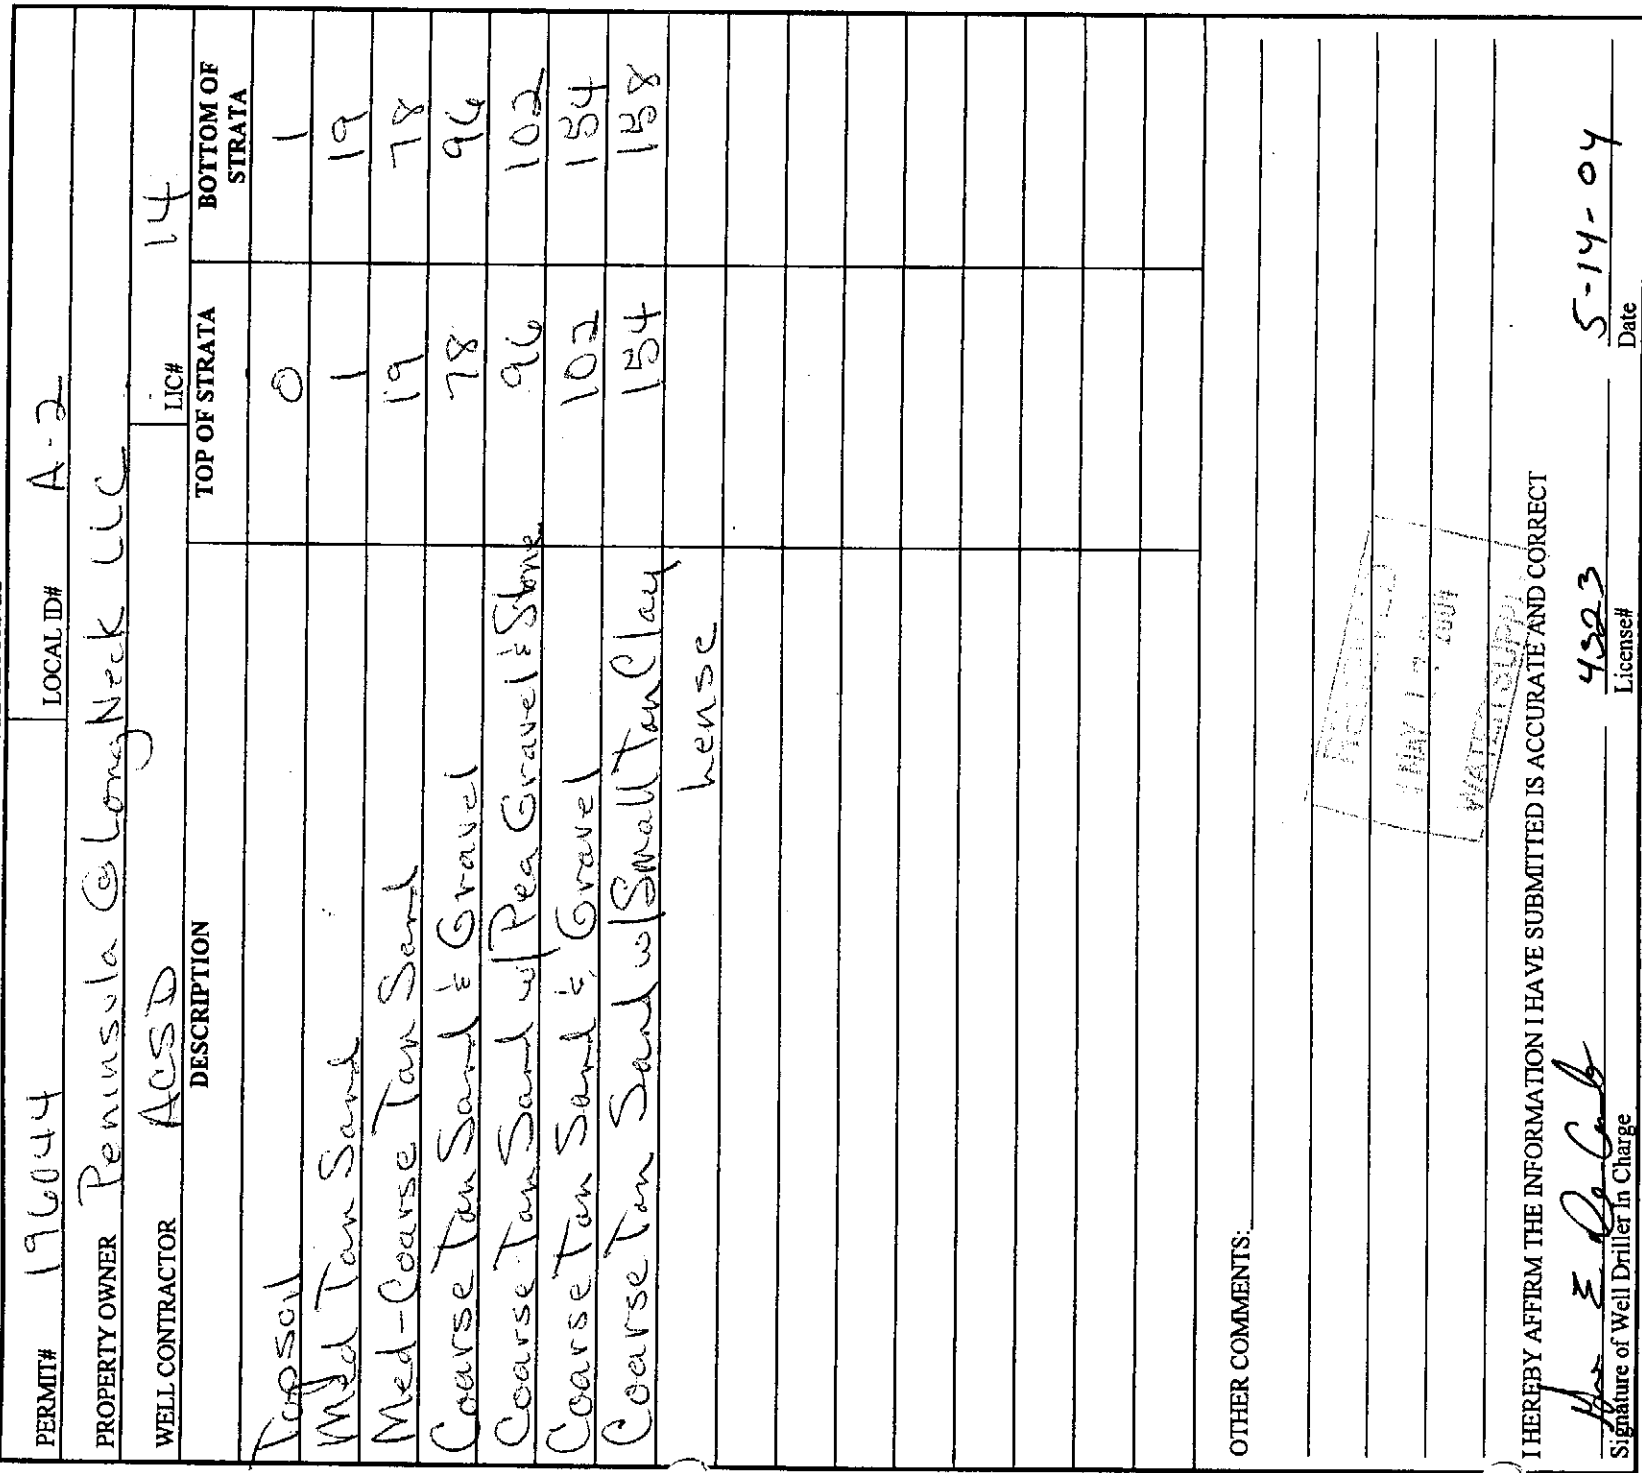 PERMIT# 196044 LOCAL ID# A-2
PROPERTY OWNER Peninsula @ Long Neck LLC
WELL CONTRACTOR ACSD LIC# 14
DESCRIPTION TOP OF STRATA BOTTOM OF STRATA
Topsoil 0 1
Med Tan Sand 1 19
Med-Coarse Tan Sand 19 78
Coarse Tan Sand & Gravel 78 96
Coarse Tan Sand w/ Pea Gravel & Stone 96 102
Coarse Tan Sand & Gravel 102 154
Coarse Tan Sand w/ Small Tan Clay 154 158
hense
OTHER COMMENTS:
MAY 2004
WATER SUPPLY
I HEREBY AFFIRM THE INFORMATION I HAVE SUBMITTED IS ACCURATE AND CORRECT
4323 5-14-04
Signature of Well Driller In Charge License# Date